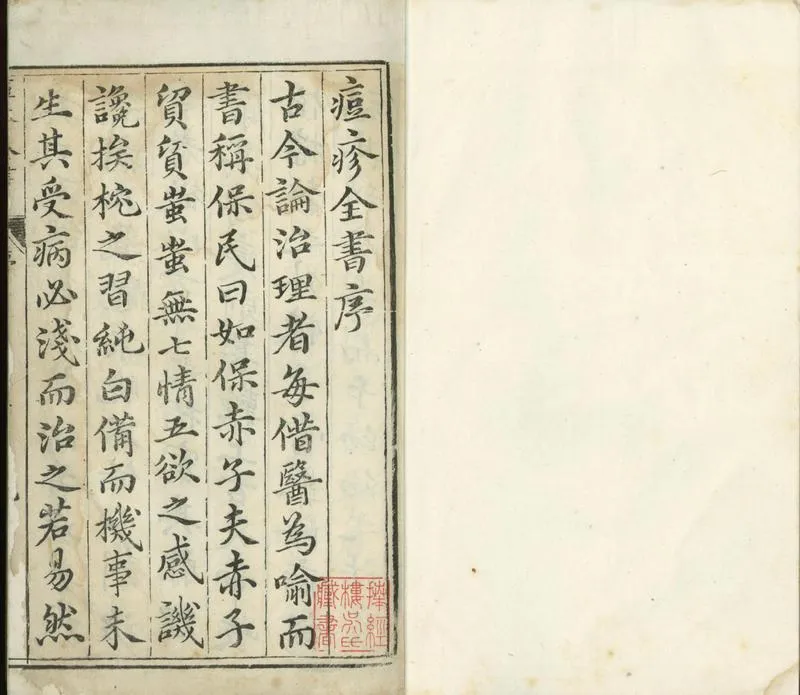 痘疹全書序
古今論治理者每借醫為喻而
書稱保民曰如保赤子夫赤子
貿貿蚩蚩無七情五欲之感譏
讒挨梡之習純白備而機事未
生其受病必淺而治之若易然
樓吳氏
藏書